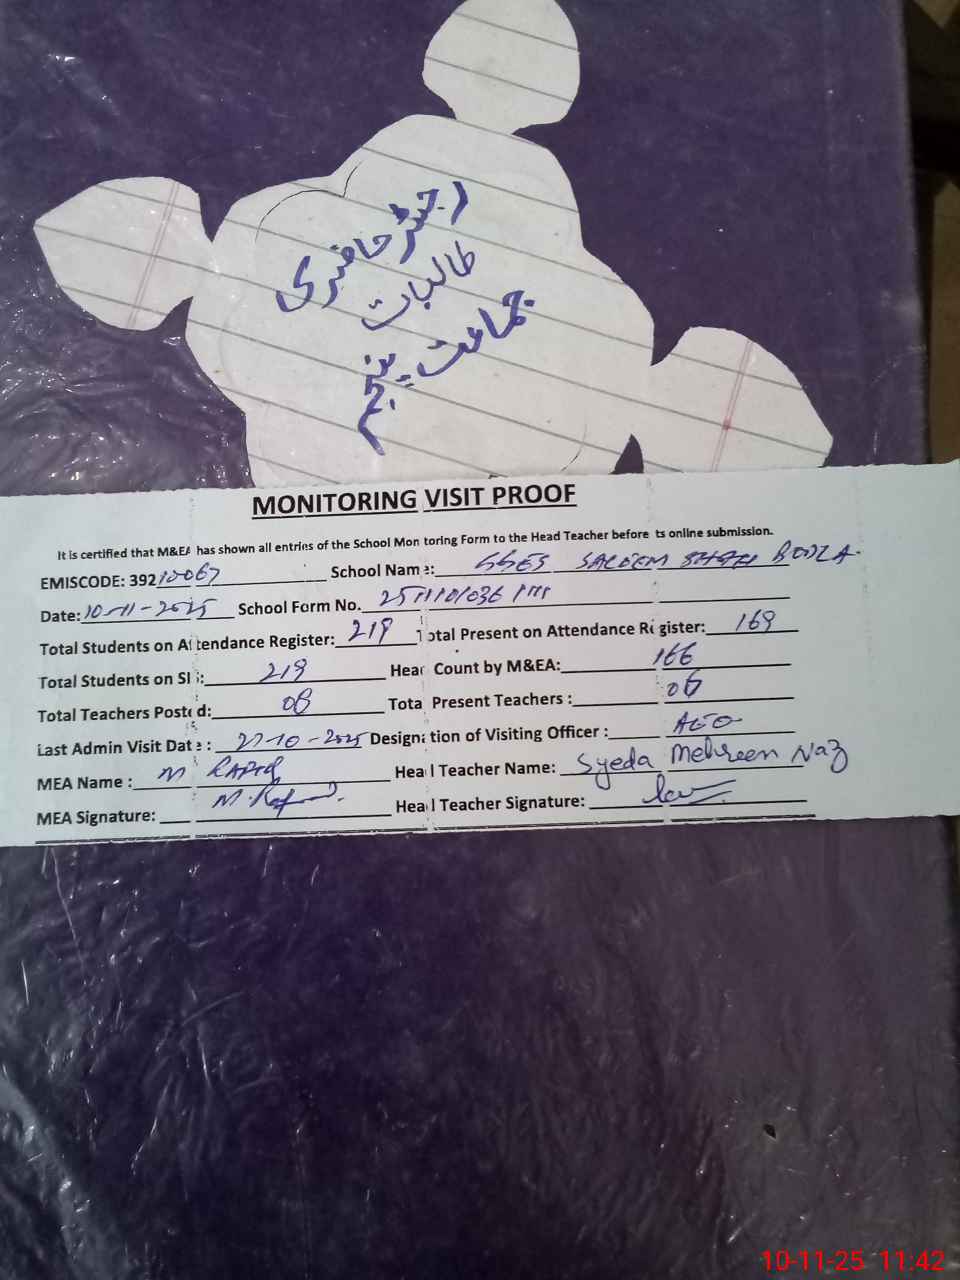 رجسٹر حاضری
طالبات
جماعت پنجم
MONITORING VISIT PROOF
It is certified that M&EA has shown all entries of the School Monitoring Form to the Head Teacher before its online submission.
EMISCODE: 39210067 School Name: GGES SALEEM SHAH BODLA
Date: 10-11-2025 School Form No.
Total Students on Attendance Register: 219 Total Present on Attendance Register: 169
Total Students on SIS: 219 Head Count by M&EA: 166
Total Teachers Posted: 08 Total Present Teachers : 06
Last Admin Visit Date : 27-10-2025 Designation of Visiting Officer : AEO
MEA Name : M RAFIQ Head Teacher Name: Syeda Mehreen Naz
MEA Signature: M. Head Teacher Signature:
10-11-25 11:42